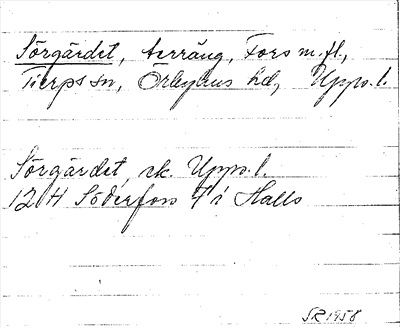 Sörgärdet, terräng, Fors m.fl.,
Tierps sn, Örbyhus hd, Upps. l.
Sörgärdet, ek. Upps. l.
12 H Söderfors 4 i Halls
SR 1958